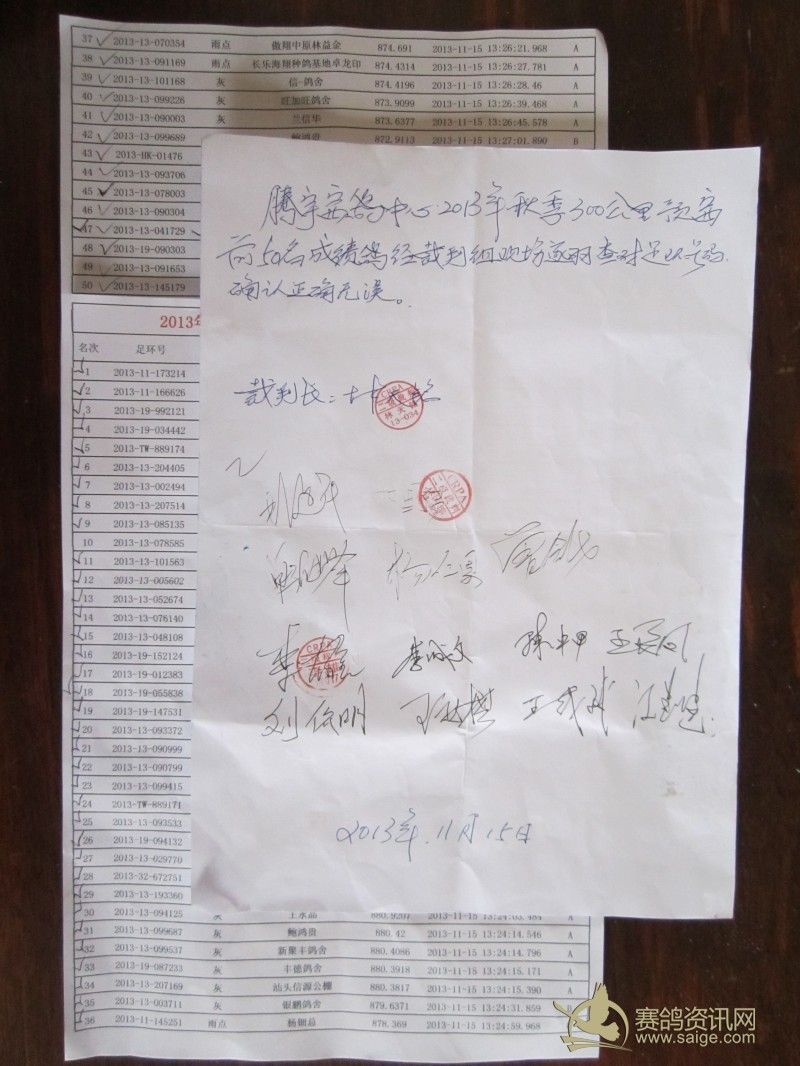 37 2013-13-070354 雨点 傲翔中原林益金 874.691 2013-11-15 13:26:21.968 A
38 2013-13-091169 雨点 长乐海翔种鸽基地卓龙印 874.4314 2013-11-15 13:26:27.781 A
39 2013-13-101168 灰 信-鸽舍 874.4196 2013-11-15 13:26:28.46 A
40 2013-13-099226 灰 旺加旺鸽舍 873.9099 2013-11-15 13:26:39.468 A
41 2013-13-090003 灰 兰信华 873.6377 2013-11-15 13:26:45.578 A
42 2013-13-099689 鲍鸿贵 872.9113 2013-11-15 13:27:01.890 B
43 2013-HK-01476
44 2013-13-093706
45 2013-13-078003
46 2013-13-090304
47 2013-13-041729
48 2013-19-090303
49 2013-13-091653
50 2013-13-145179
腾宇赛鸽中心2013年秋季300公里预赛
前50名成绩鸽经裁判组现场逐羽查对足环号码
确认正确无误。
裁判长：
2013年
名次 足环号
1 2013-11-173214
2 2013-11-166626
3 2013-19-992121
4 2013-19-034442
5 2013-TW-889174
6 2013-13-204405
7 2013-13-002494
8 2013-13-207514
9 2013-13-085135
10 2013-13-078585
11 2013-13-101563
12 2013-13-005602
13 2013-13-052674
14 2013-13-076140
15 2013-13-048108
16 2013-19-152124
17 2013-19-012383
18 2013-19-055838
19 2013-19-147531
20 2013-13-093372
21 2013-13-090999
22 2013-13-090799
23 2013-13-099415
24 2013-TW-889174
25 2013-13-093533
26 2013-19-094132
27 2013-13-029770
28 2013-32-672751
29 2013-13-193360
2013年11月15日
30 2013-13-094125 灰 王永品 880.9207 2013-11-15 13:24:03.484 A
31 2013-13-099687 灰 鲍鸿贵 880.42 2013-11-15 13:24:14.546 A
32 2013-13-099537 灰 新聚丰鸽舍 880.4086 2013-11-15 13:24:14.796 A
33 2013-19-087233 灰 丰德鸽舍 880.3918 2013-11-15 13:24:15.171 A
34 2013-13-207169 灰 汕头信源公棚 880.3817 2013-11-15 13:24:15.390 A
35 2013-13-003711 灰 银鹏鸽舍 879.6371 2013-11-15 13:24:31.859 B
36 2013-11-145251 雨点 杨钿总 878.369 2013-11-15 13:24:59.968 A
赛鸽资讯网
www.saige.com